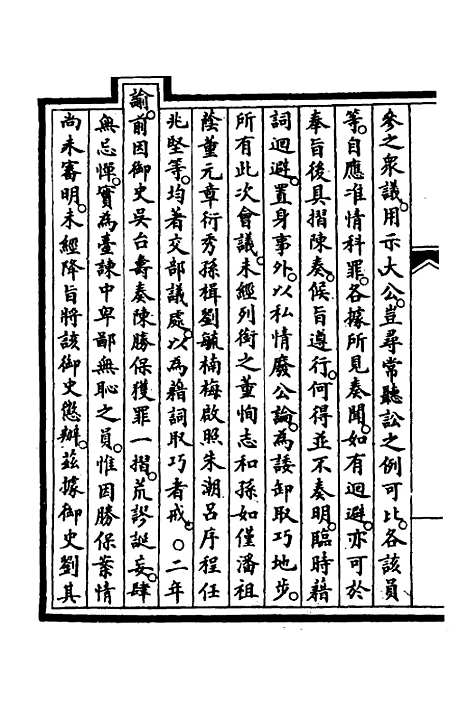 參之衆議。用示大公。豈尋常聽訟之例可比。各該員
等。自應准情科罪。各據所見奏聞。如有迴避。亦可於
奉旨後具摺陳奏。候旨遵行。何得並不奏明。臨時藉
詞迴避。置身事外。以私情廢公論。為諉卸取巧地步。
所有此次會議。未經列銜之董恂志和孫如僅潘祖
蔭董元章衍秀孫楫劉毓楠梅啟照朱潮呂序程任
兆堅等。均著交部議處。以為藉詞取巧者戒。○二年
諭。前因御史吳台壽奏陳勝保獲罪一摺。荒謬誕妄。肆
無忌憚。實為臺諫中卑鄙無恥之員。惟因勝保案情
尚未審明。未經降旨將該御史懲辦。茲據御史劉其